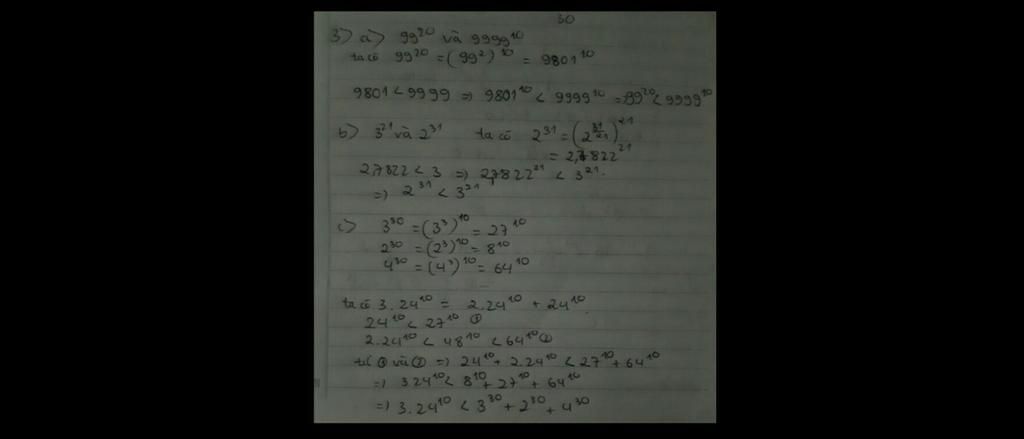 30
3) a) 99²⁰ và 9999¹⁰
ta có 99²⁰ = (99²)¹⁰ = 9801¹⁰
9801 < 9999 => 9801¹⁰ < 9999¹⁰ => 99²⁰ < 9999¹⁰
b) 3²¹ và 2³¹ ta có 2³¹ = (2^(31/21))²¹
= 2,7822²¹
2,7822 < 3 => 2,7822²¹ < 3²¹.
=> 2³¹ < 3²¹
c) 3³⁰ = (3³)¹⁰ = 27¹⁰
2³⁰ = (2³)¹⁰ = 8¹⁰
4³⁰ = (4³)¹⁰ = 64¹⁰
ta có 3.24¹⁰ = 2.24¹⁰ + 24¹⁰.
24¹⁰ < 27¹⁰ ①
2.24¹⁰ < 48¹⁰ < 64¹⁰ ②
từ ① và ② => 24¹⁰ + 2.24¹⁰ < 27¹⁰ + 64¹⁰
=> 3.24¹⁰ < 8¹⁰ + 27¹⁰ + 64¹⁰
=> 3.24¹⁰ < 3³⁰ + 2³⁰ + 4³⁰